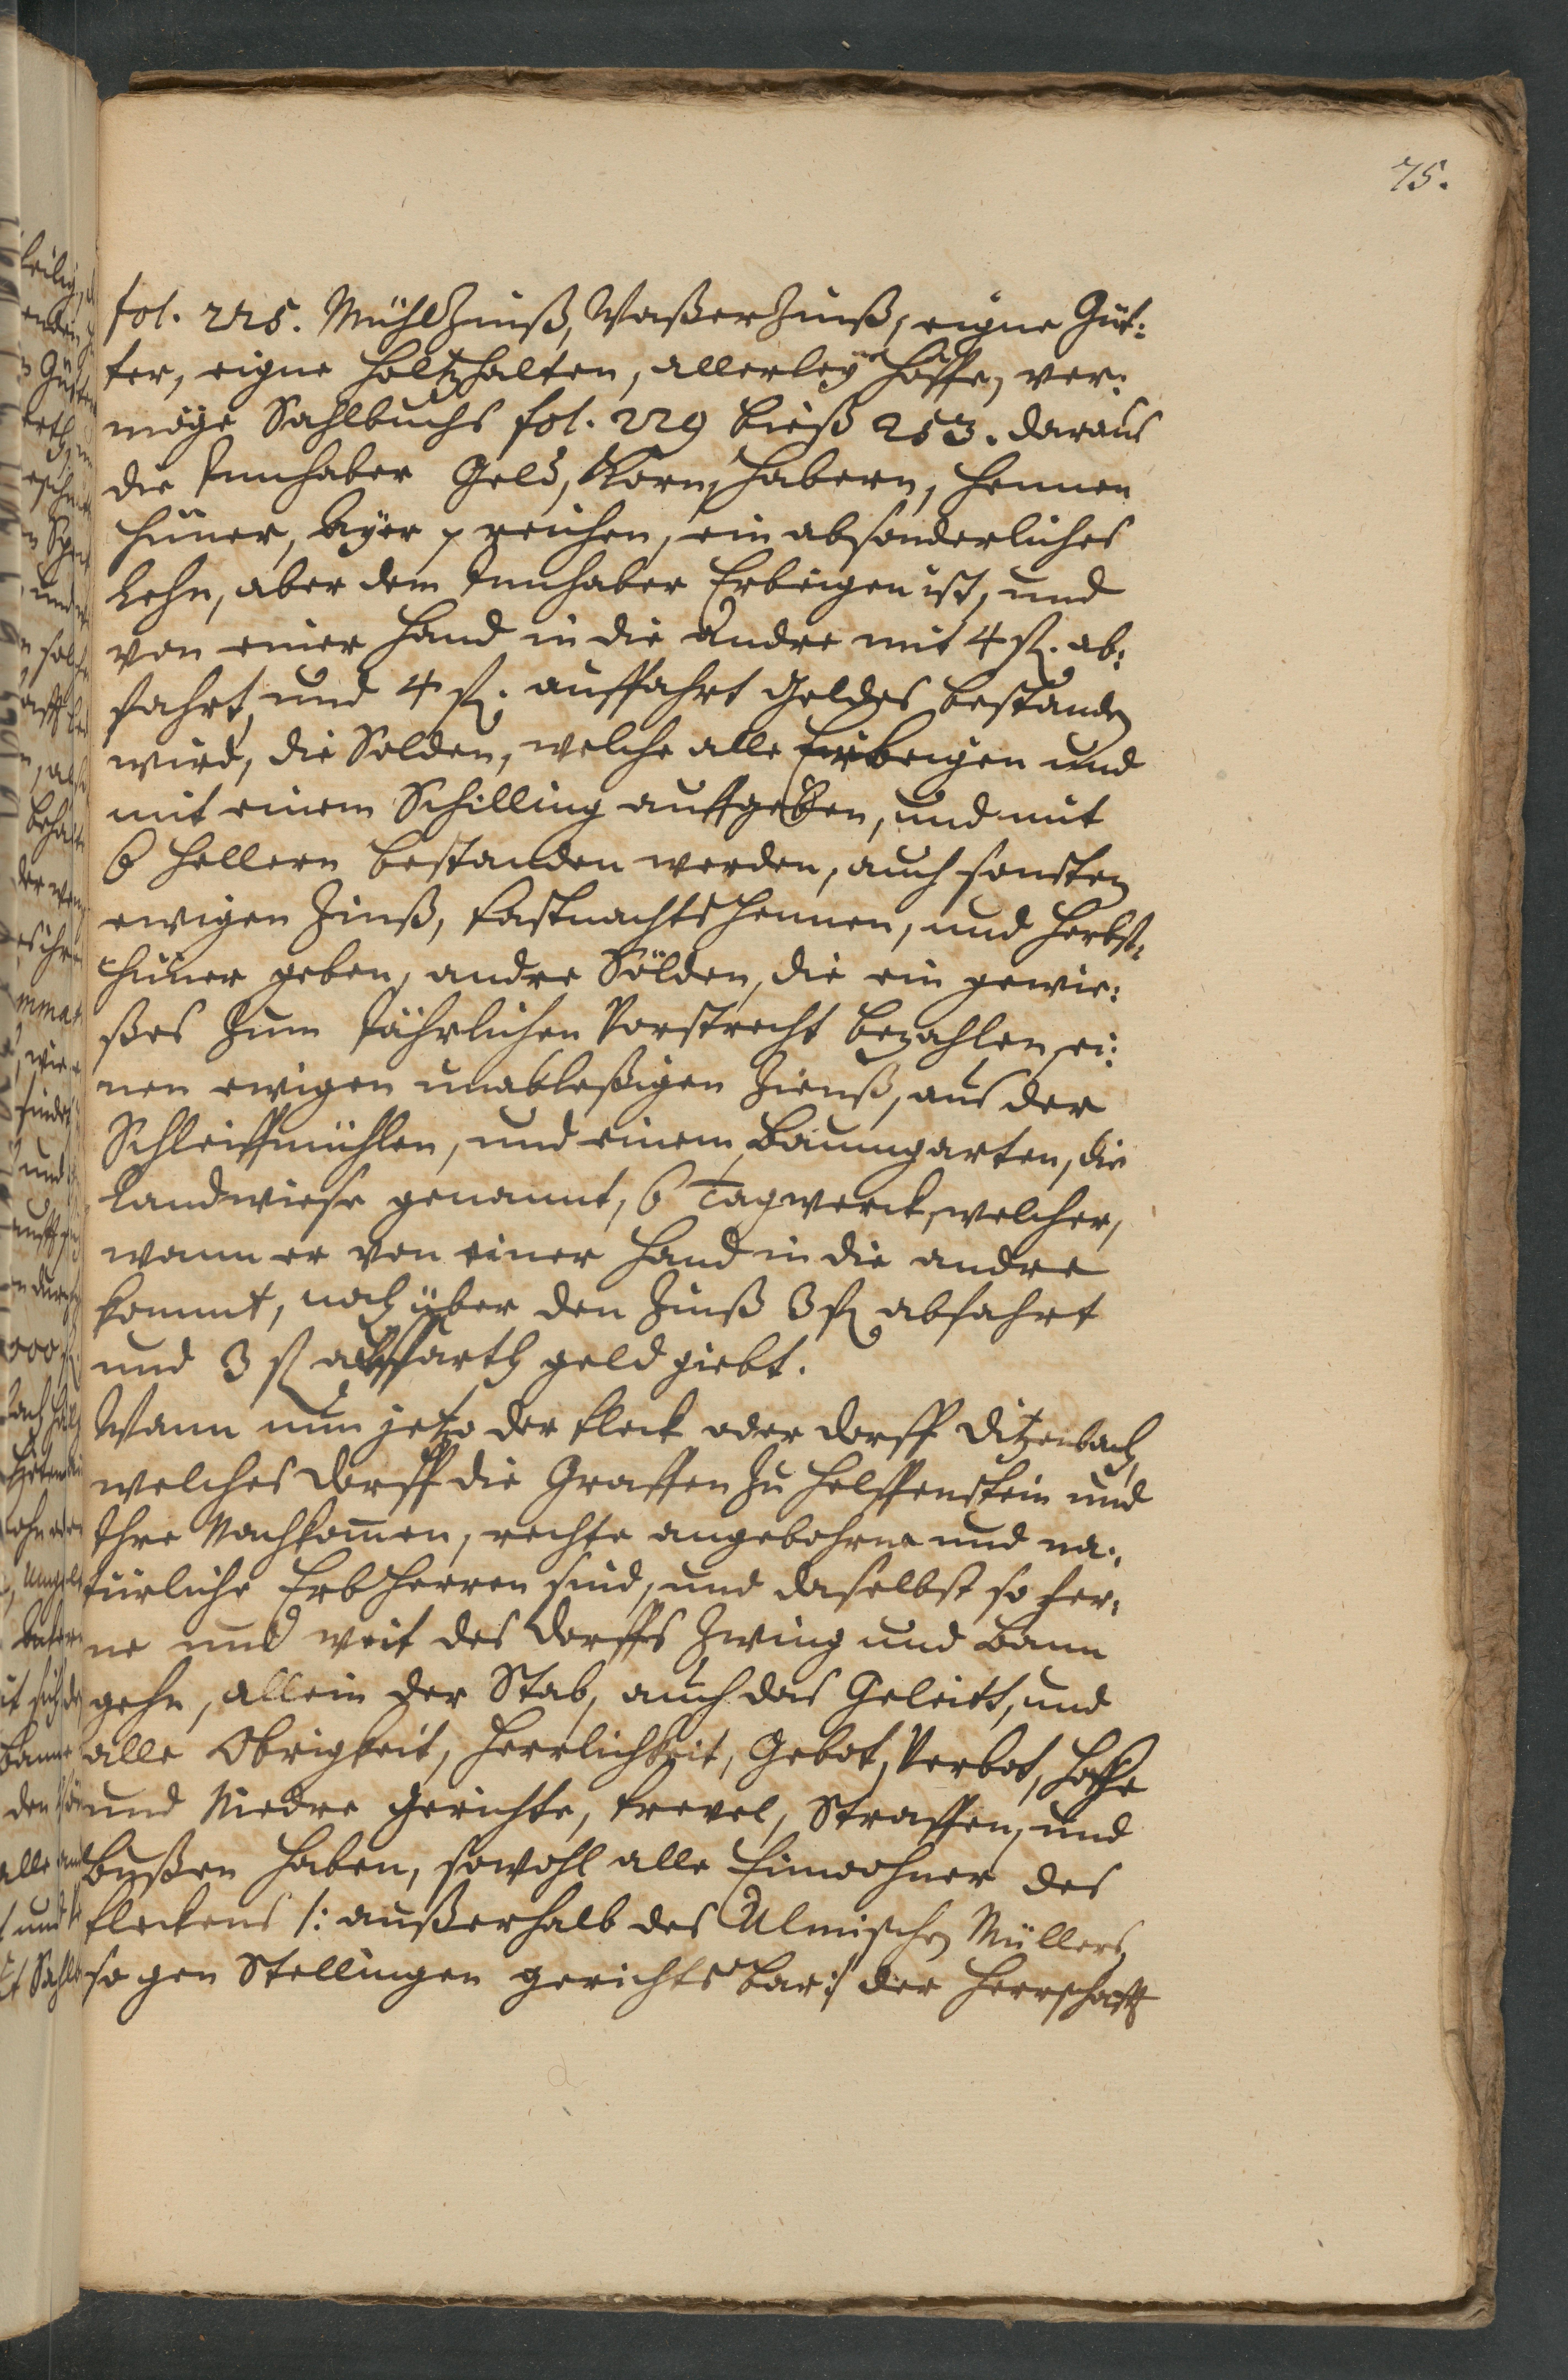 75.
fol. 225. Mühlzinß, Waßerzinß, eigne Güt:
ter, eigne Holtzhalten, allerley Höffe, ver:
möge Sahlbuchs fol. 229 bieß 253. daraus
die Innhaber Geld, Korn, Habern, Hennen
Hüner, Ayer p reichen, ein absonderliches
Lehn, aber dem Innhaber Erbeigen ist, und
von einer Hand in die Andre mit 4 fl. ab:
fahrt, und 4 fl. auffahrt Geldes bestanden
wird, die Solden, welche alle Erbeigen und
mit einem Schilling auffgeben, und mit
6 Hellern bestanden werden, auch sonsten
ewigen Zinß, Fastnachts Hennen, und Herbst:
Hüner geben, andre Sölden, die ein gewie:
ßes zum Jährlichen Vorstrecht bezahlen, ei:
nen ewigen unableßigen Zienß, aus der
Schleiffmühlen, und einem Baumgarten, die
Landwiese genannt, 6 Tagwerck, welcher,
wann er von einer Hand in die andre
kommt, noch über den Zinß 3 fl abfahrt
und 3 fl auffarth geld giebt.
Wann nun jetzo der Fleck oder Dorff Ditzenbach,
welches Dorff die Graffen zu Helffenstein und
Ihre Nachkommen, rechte angebohrne und na:
türliche Erb Herren sind, und daselbst so fer:
ne und weit des Dorffs Zwing und Bann
gehn, allein der Stab, auch das Geleitt, und
alle Obrigkeit, Herrlichkeit, Gebot, Verbot, Hohe
und Niedre Gerichte, Frevel, Straffen, und
Bußen haben, sowohl alle Einwohner des
Fleckens /: außerhalb des Ulmischen Müllers,
so gen Stellingen gerichtsbar :/ der Herrschafft